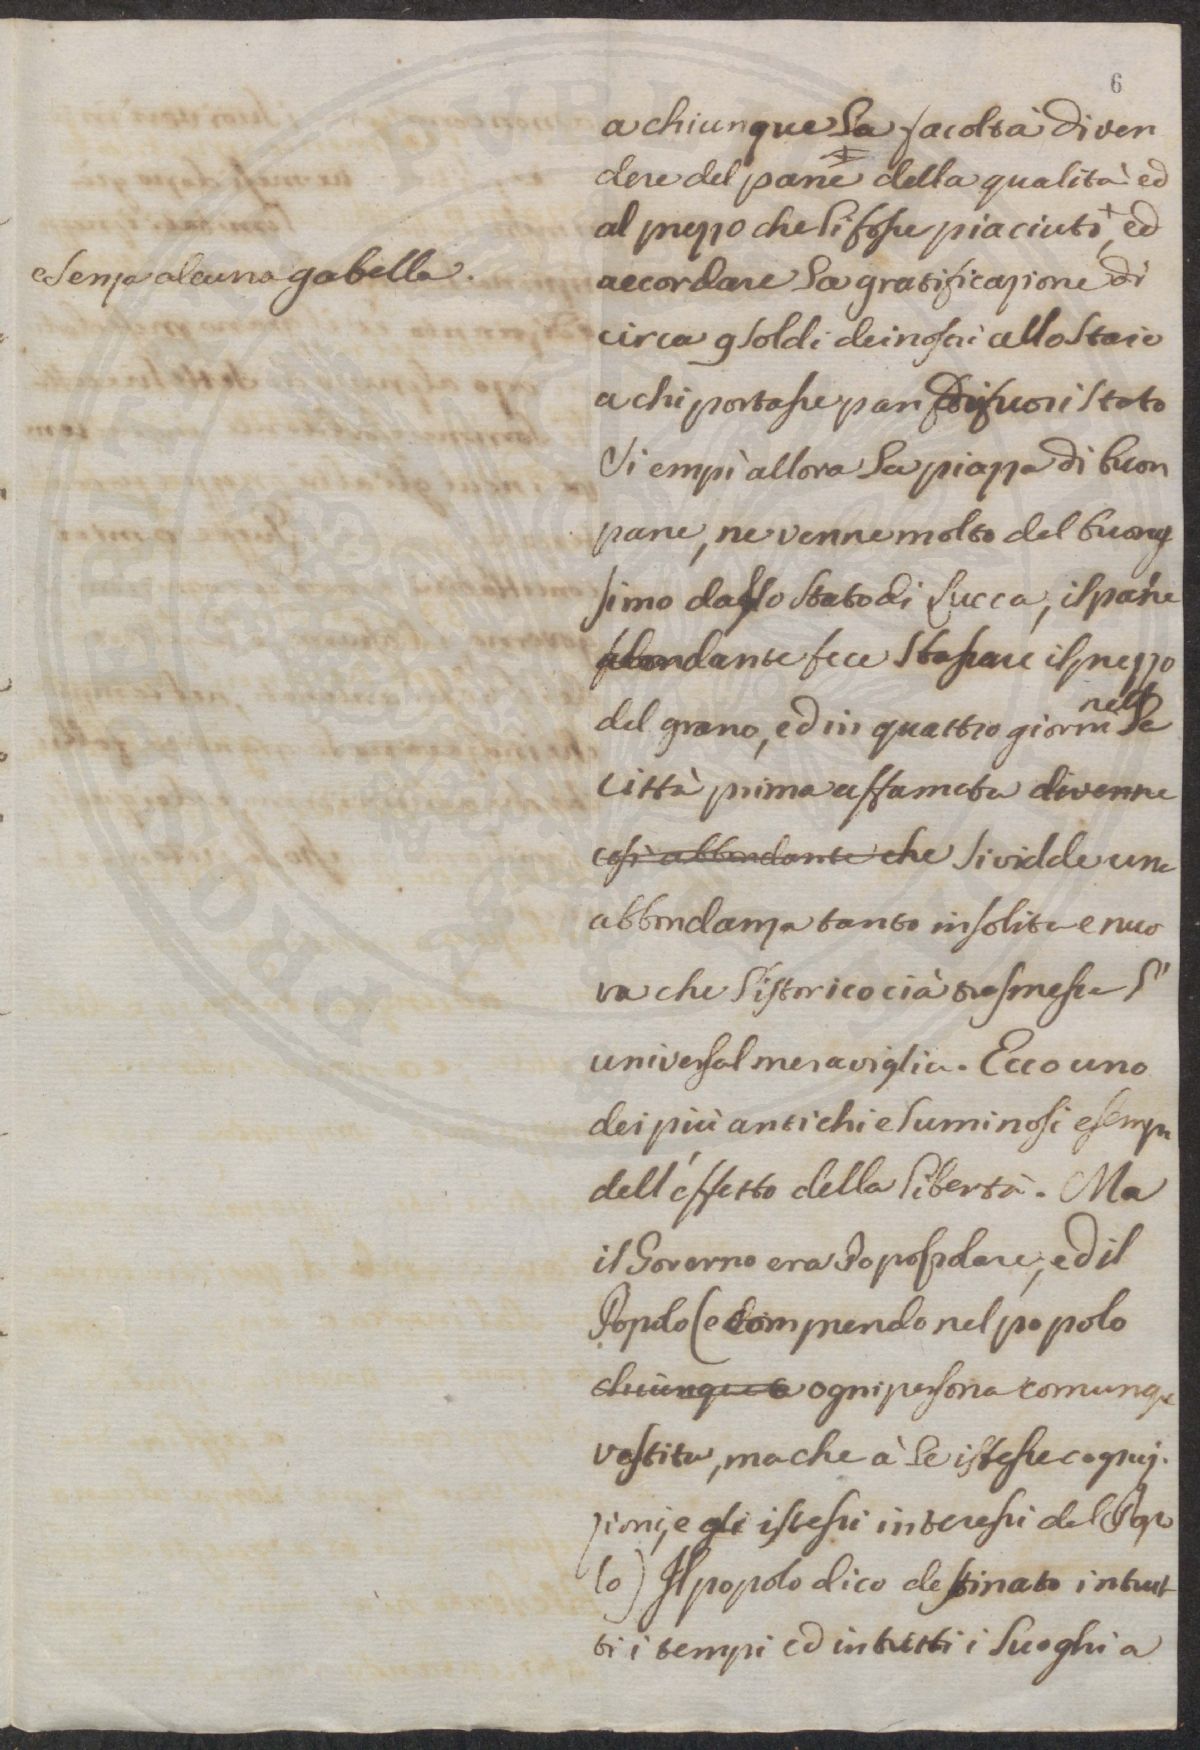 6
a chiunque la facoltà di ven
dere del pane della qualità ed
al prezzo che li fosse piaciuto +, ed
e senza alcuna gabella.
accordare la gratificazione di
circa 9 soldi dei nostri allo staio
a chi portasse pan di fuori stato
Si empì allora la piazza di buon
pane, ne venne molto del buonis
simo dallo stato di Lucca, il pane
abondante fece stassare il prezzo
del grano, ed in quattro giorni nella
città prima affamata divenne
così abbondante che si vidde una
abbondanza tanto insolita e nuo
va che l'istorico cià trasmesse l'
universal meraviglia. Ecco uno
dei più antichi e luminosi esempi
dell'effetto della libertà. Ma
il Governo era Popolare, ed il
Popolo (e comprendo nel popolo
chiunque ogni persona comunqe
vestita, ma che à le istesse cogniz.
zioni, e gli istessi interessi del Popo
lo) Il popolo dico destinato in tut
ti i tempi ed in tutti i luoghi a